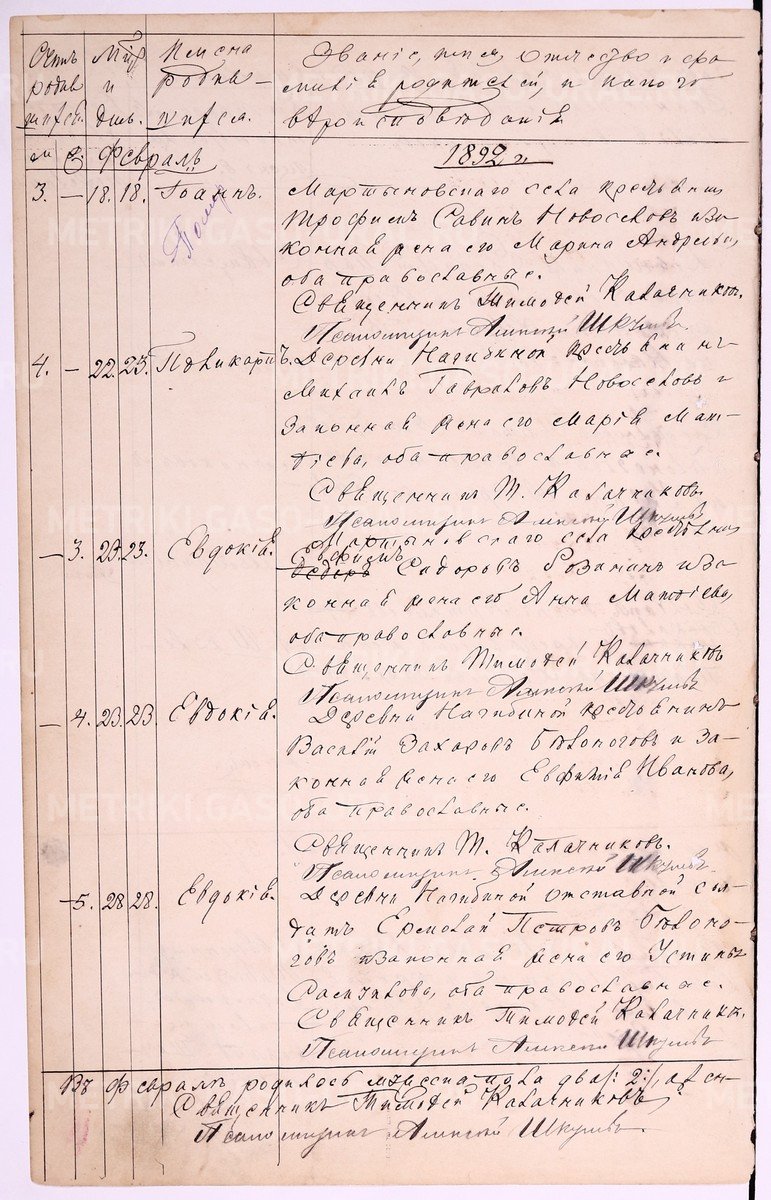 Счетъ родив шихся
Мцъ и день.
Имена родив- шихся.
Званіе, имя, отчество и фа
милія родителей, и какого
вѣроисповѣданія
м ж Февраль 1892 г.
3. — 18. 18. Іоаннъ. Мартыновскаго села крестьянинъ
Трофимъ Савинъ Новоселовъ и за
конная жена его Марина Андреева,
оба православные.
Священникъ Тимофей Калачниковъ.
Псаломщикъ Алексѣй Шкулевъ
4. — 22. 23. Поликарпъ. Деревни Нагибиной крестьянинъ
Михаилъ Гавриловъ Новоселовъ и
законная жена его Марія Мат-
ѳіева, оба православные.
Священникъ Т. Калачниковъ.
Псаломщикъ Алексѣй Шкулевъ
— 3. 23. 23. Евдокія. Мартыновскаго села крестьянинъ
Евфимъ
Ѳедоръ Сидоровъ и за
конная жена его Анна Матѳіева,
оба православные.
Священникъ Тимофей Калачниковъ
Псаломщикъ Алексѣй Шкулевъ
— 4. 23. 23. Евдокія. Деревни Нагибиной крестьянинъ
Василій Захаровъ Бѣлоноговъ и за
конная жена его Евфимія Иванова,
оба православные.
Священникъ Т. Калачниковъ.
Псаломщикъ Алексѣй Шкулевъ
— 5. 28. 28. Евдокія. Деревни Нагибиной отставной сол-
датъ Ермолай Петровъ Бѣлоно-
говъ и законная жена его Устинья
оба православные.
Священникъ Тимофей Калачниковъ.
Псаломщикъ Алексѣй Шкулевъ
Въ Февралѣ родилось мужеска пола два /: 2 :/, а жен-
Священникъ Тимофей Калачниковъ
Псаломщикъ Алексѣй Шкулевъ.